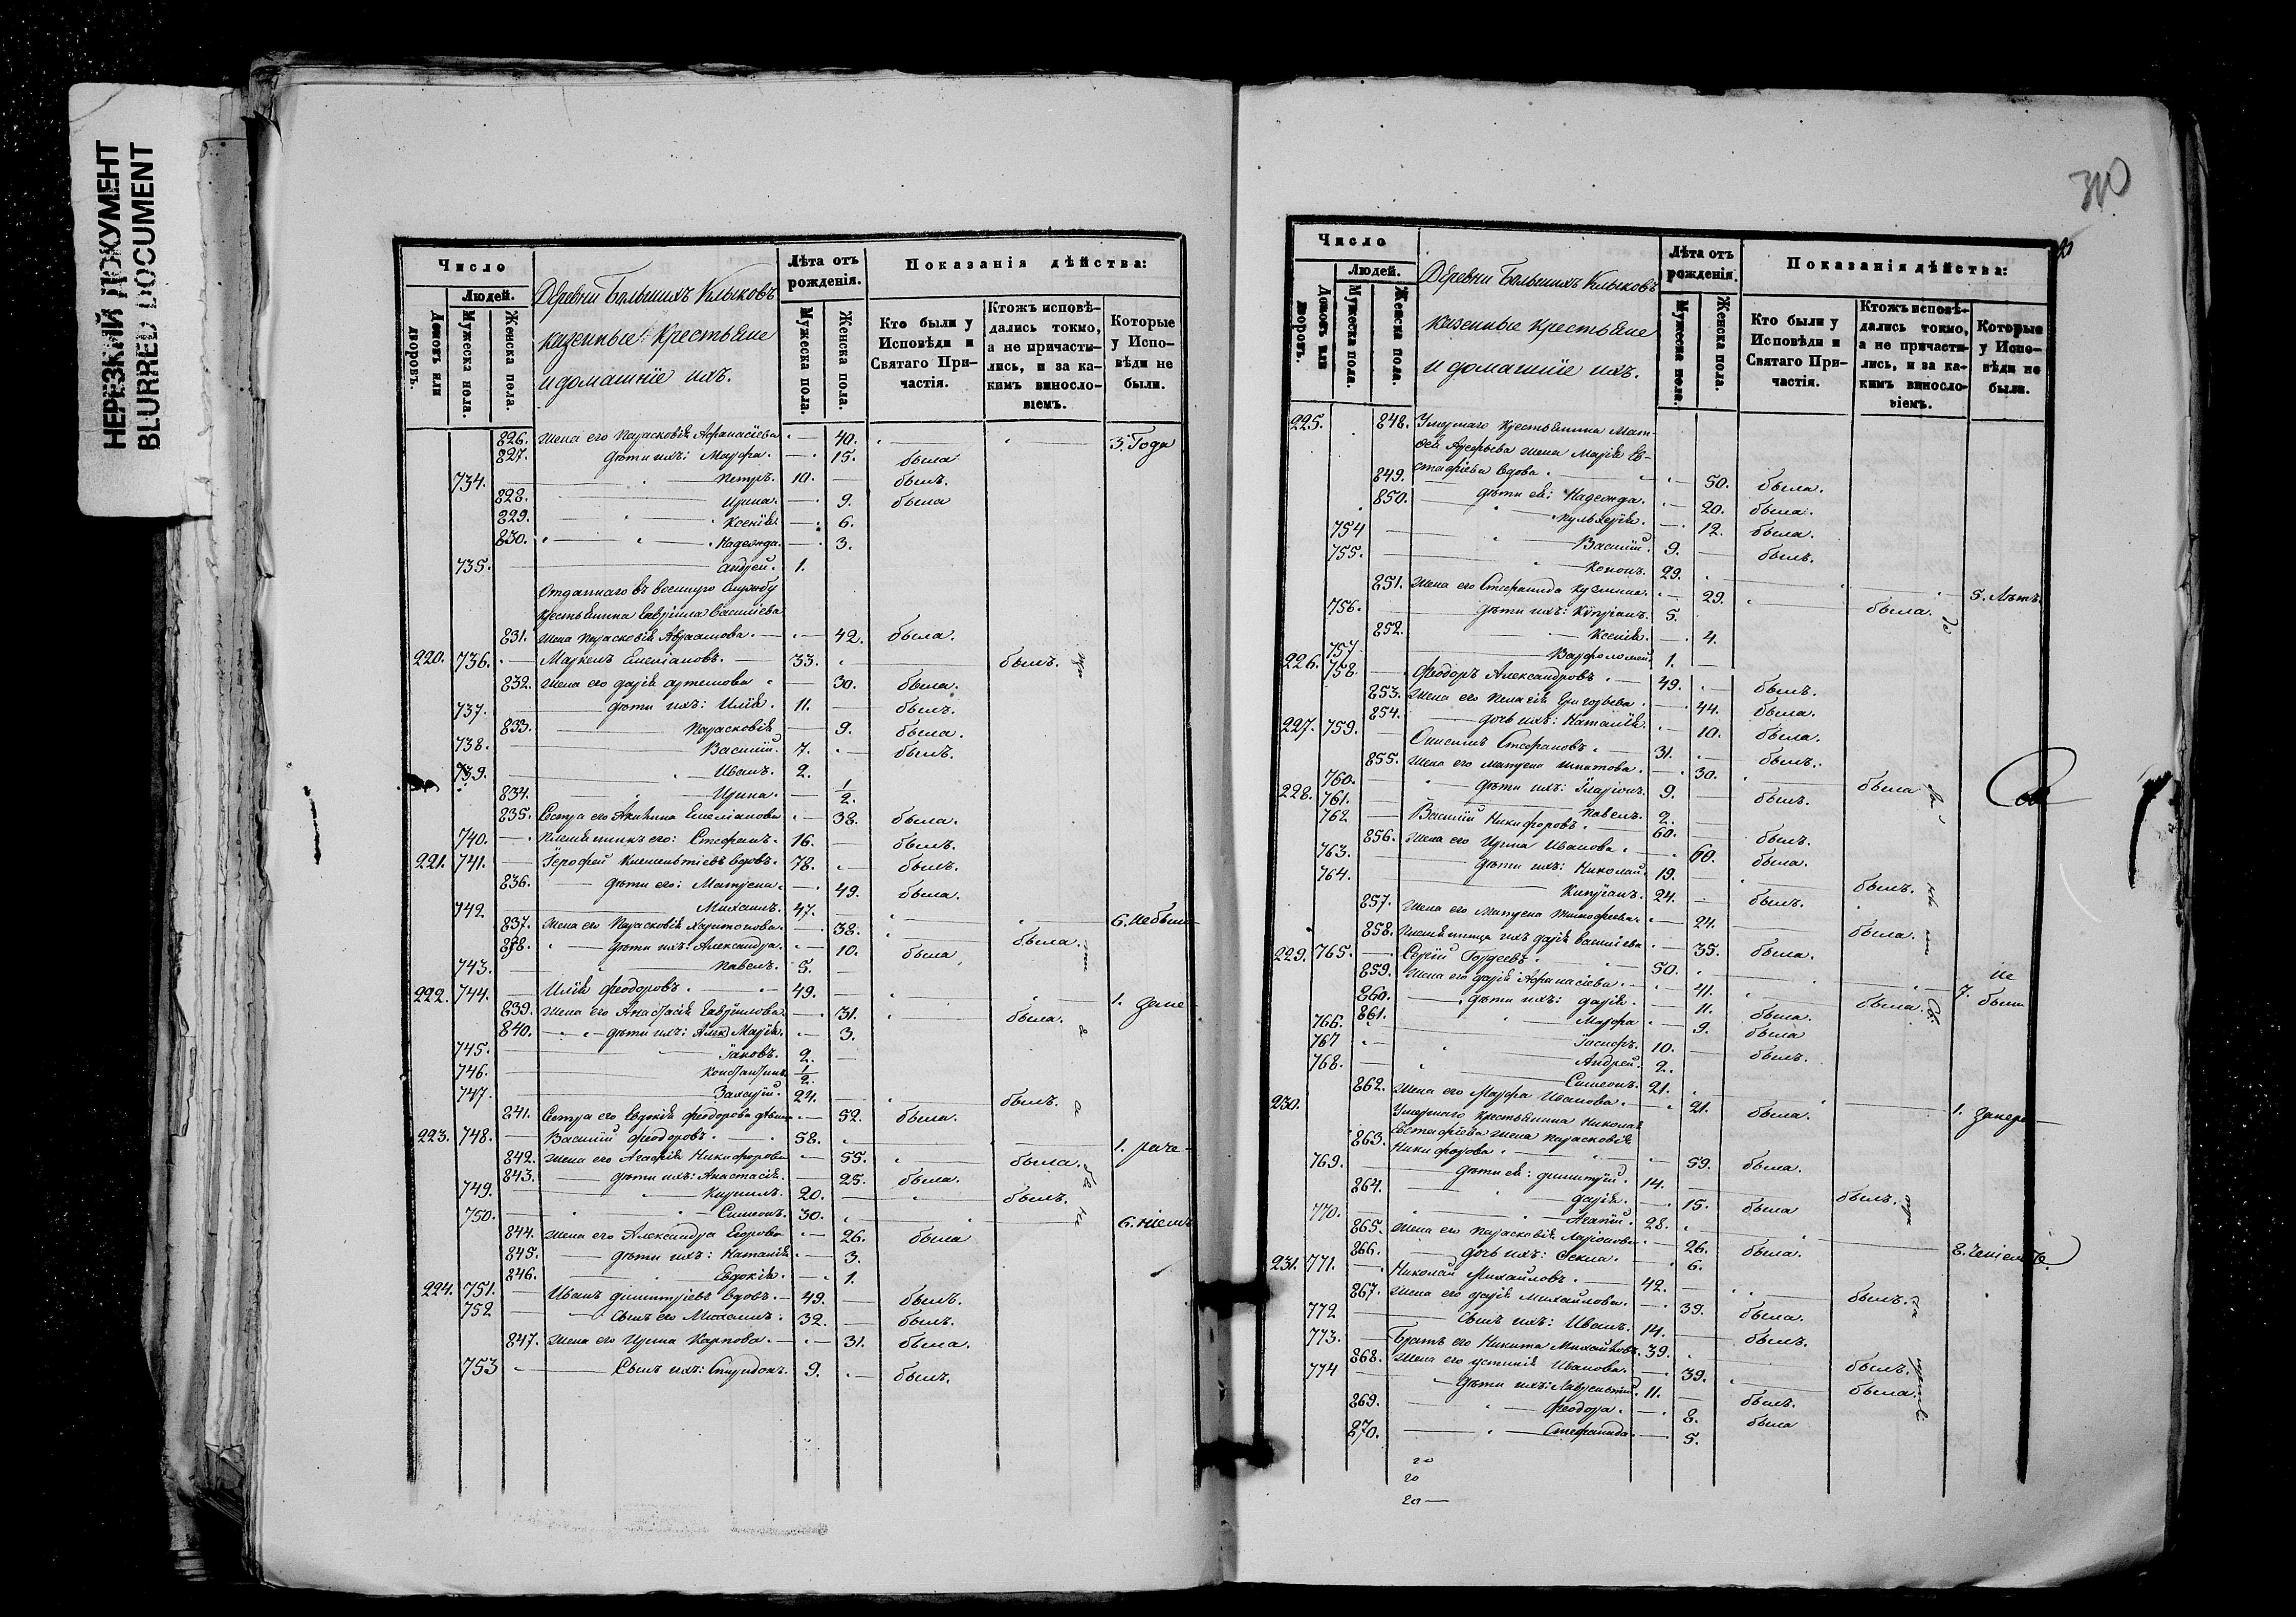 НЕРЕЗКИЙ ДОКУМЕНТ
BLURRED DOCUMENT
Число
Людей.
Домовъ или дворовъ.
Мужеска пола.
Женска пола.
Деревни Большихъ Клыковъ
казенные крестьяне
и домашніе ихъ.
Лѣта отъ рожденія.
Мужеска пола.
Женска пола.
Показанія дѣйства:
Кто были у Исповѣди и Святаго Причастія.
Ктожъ исповѣдались токмо, а не причастились, и за какимъ винословіемъ.
Которые у Исповѣди не были.
826. Жена его Парасковія Афанасіева 40. 3. Года
827. дѣти ихъ: Марфа. 15. была
734. Петръ. 10. былъ.
828. Ирина. 9. была
829. Ксенія. 6.
830. Надежда. 3.
735. Андрей. 1.
Отданнаго въ военную службу
крестьянина Гавріила Васильева
831. Жена Парасковія Авраамова. 42. была.
220. 736. Маркелъ Емеліановъ. 33. былъ.
832. Жена его Дарія Артемова 30. была.
737. дѣти ихъ: Илія. 11. былъ.
833. Парасковія 9. была.
738. Василій. 7. былъ.
739. Иванъ. 2.
834. Ирина. 1/2.
835. Сестра его Акилина Емеліанова 38. была.
740. Племянникъ его: Стефанъ. 16. былъ.
221. 741. Іерофей Климентіевъ вдовъ. 78. былъ.
836. дѣти его: Матрена. 49. была.
742. Михаилъ. 47. 6. не были
837. Жена его Парасковія Харитонова. 38. была.
838. дѣти ихъ: Александра. 10. была
743. Павелъ. 5.
222. 744. Илія Феодоровъ. 49. 1. за не
839. Жена его Анастасія Гавріилова 31. была.
840. дѣти ихъ: Марія. 3.
745. Іаковъ. 2.
746. Константинъ 1/2.
747. Захарій. 24. былъ.
841. Сестра его Евдокія Феодорова дѣвица 52. была.
223. 748. Василій Феодоровъ. 58. 1. раче
842. Жена его Агафія Никифорова 55. была.
843. дѣти ихъ: Анастасія. 25. была.
749. Кирилъ. 20. былъ.
750. Симеонъ. 30. 6. ніемъ
844. Жена его Александра Егорова 26. была
845. дѣти ихъ: Наталія 3.
846. Евдокія. 1.
224. 751. Иванъ Димитріевъ вдовъ. 49. былъ.
752 Сынъ его Михаилъ. 32. былъ.
847. Жена его Ирина Карпова. 31. была.
753 Сынъ ихъ: Спиридонъ. 9. былъ.
310
Число
Людей.
Домовъ или дворовъ.
Мужеска пола.
Женска пола.
Деревни Большихъ Клыковъ
казенные крестьяне
и домашніе ихъ.
Лѣта отъ рожденія.
Мужеска пола.
Женска пола.
Показанія дѣйства:
Кто были у Исповѣди и Святаго Причастія.
Ктожъ исповѣдались токмо, а не причастились, и за какимъ винословіемъ.
Которые у Исповѣди не были.
225. 848. Умершаго крестьянина Мат-
вея Арефьева жена Марія Ев-
стафіева вдова. 50. была.
849. дѣти ея: Надежда. 20. была.
850. Пульхерія. 12. была.
754 Василій. 9. былъ.
755. Кононъ. 29. 5. Лѣтъ
851. Жена его Стефанида Кузмина. 29. была.
756. дѣти ихъ: Кипріанъ. 5.
852. Ксенія. 4.
757 Варфоломей. 1.
226. 758. Феодоръ Александровъ 49. былъ.
853. Жена его Пелагія Григорьева. 44. была.
854. дочь ихъ: Наталія. 10. была.
227. 759. Онисимъ Стефановъ. 31. былъ.
855. Жена его Матрена Игнатова. 30. была
760. дѣти ихъ: Иларіонъ. 9. былъ.
761. Павелъ. 2.
228. 762 Василій Никифоровъ. 60. былъ.
856. Жена его Ирина Иванова. 60. была.
763. дѣти ихъ: Николай. 19. былъ.
764. Кипріанъ. 24. былъ.
857. Жена его Матрена Тимофеева. 24. была.
858. Племянница ихъ Дарія Васильева 35. была.
229. 765. Сергій Гордеевъ. 50. 7. не были
859. Жена его Дарія Афанасіева. 41. была.
860. дѣти ихъ: Дарія. 11. была.
861. Марфа 9. была
766. Іосифъ. 10. былъ.
767 Андрей. 2.
768. Симеонъ. 21. 1. за нера
862. Жена его Марфа Иванова. 21. была.
230. Умершаго крестьянина Николая
Евстафіева жена Парасковія
863. Никифорова. 59. была.
769. дѣти ея: Димитрій. 14. былъ.
864. Дарія. 15. была
770. Агапій. 28. 8. ченіемъ
865. Жена его Парасковія Ларіонова 26. была.
866. дочь ихъ: Фекла. 6.
231. 771. Николай Михайловъ. 42. былъ.
867. Жена его Дарія Михайлова. 39. была.
772 Сынъ ихъ: Иванъ. 14. былъ.
773. Братъ его Никита Михайловъ. 39. былъ.
868. Жена его Устинія Иванова. 39. была.
774 дѣти ихъ: Лаврентій. 11. былъ.
869. Феодора. 8. была
870. Стефанида. 5.
20
20
20